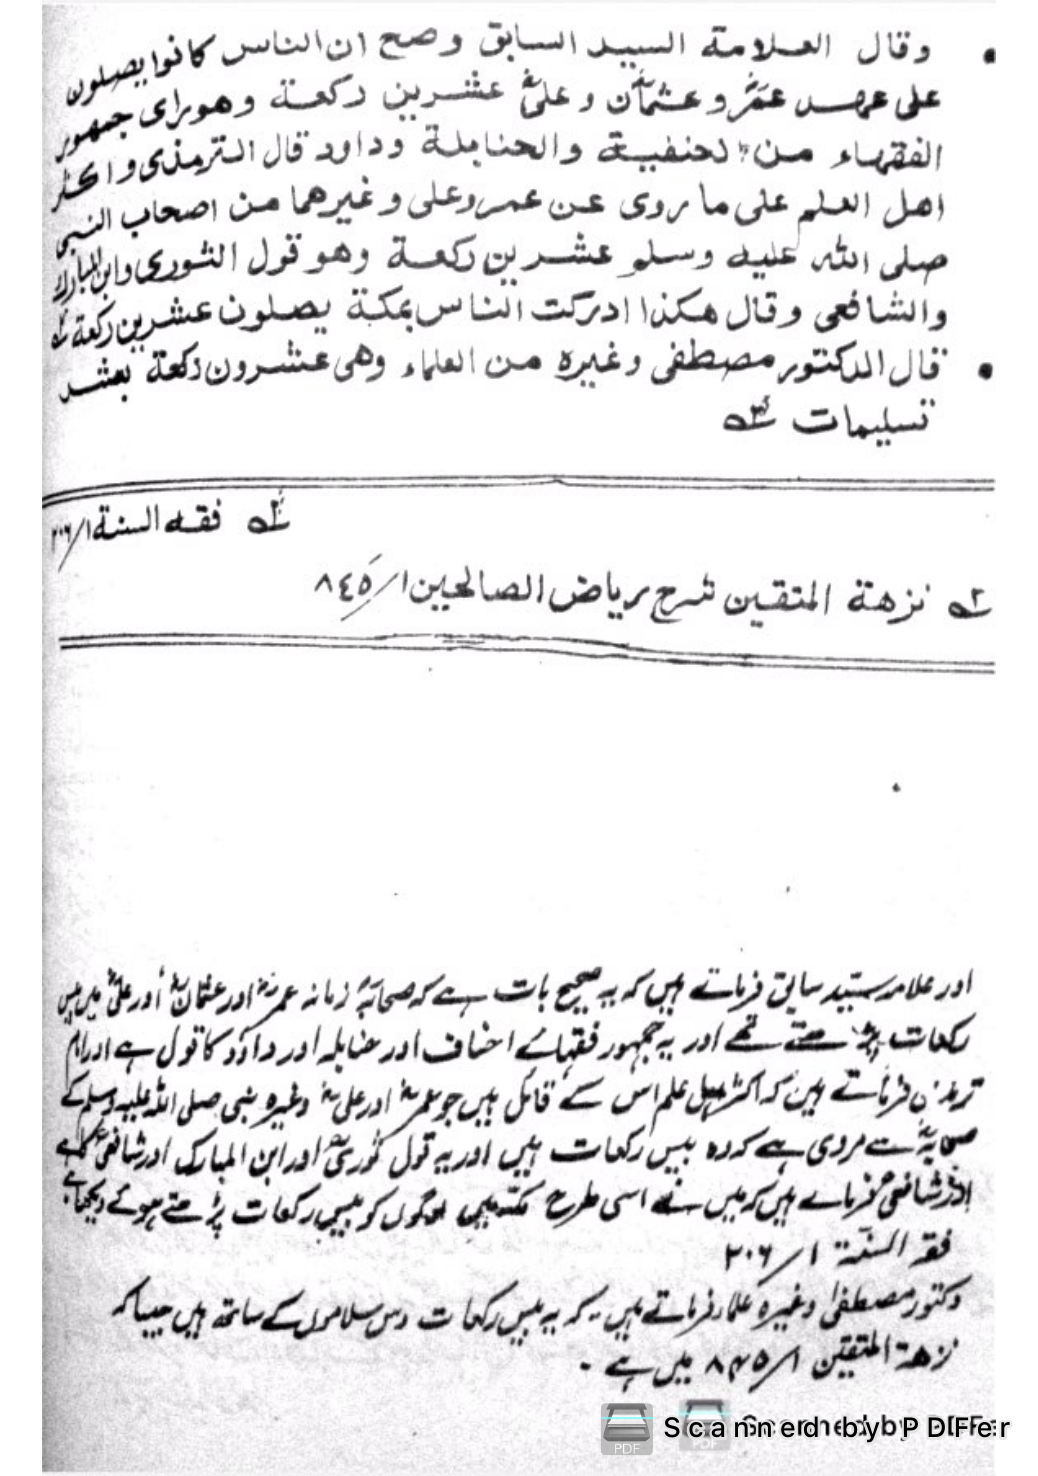 • وقال العلامة السيد السابق وصح ان الناس كانوا يصلون
على عهد عمرؓ و عثمانؓ و علیؓ عشرين ركعة وهو رای جمهور
الفقهاء من الحنفية والحنابلة وداود قال الترمذی و اكثر
اهل العلم على ما روی عن عمر وعلی و غيرهما من اصحاب النبی
صلى الله عليه وسلم عشرين ركعة وهو قول الثوری وابن المبارك
والشافعی وقال هكذا ادركت الناس بمكة يصلون عشرين ركعة ١ه
• قال الدكتور مصطفی وغيره من العلماء وهی عشرون ركعة بعشر
تسليمات ٢ه
١ه فقه السنة ١/٢٠٦
٢ه نزهة المتقين شرح رياض الصالحين ١/٨٤٥
اور علامہ سید سابق فرماتے ہیں کہ یہ صحیح بات ہے کہ صحابہؓ زمانہ عمرؓ اور عثمانؓ اور علیؓ میں بیس
رکعات پڑھتے تھے اور یہ جمہور فقہائے احناف اور حنابلہ اور داؤد کا قول ہے اور امام
ترمذی فرماتے ہیں کہ اکثر اہل علم اس کے قائل ہیں جو عمرؓ اور علیؓ وغیرہ نبی صلی اللہ علیہ وسلم کے
صحابہؓ سے مروی ہے کہ وہ بیس رکعات ہیں اور یہ قول ثوریؒ اور ابن المبارک اور شافعیؒ کا ہے
اور شافعیؒ فرماتے ہیں کہ میں نے اسی طرح مکہ میں لوگوں کو بیس رکعات پڑھتے ہوئے دیکھا ہے
فقہ السنّة ١/٢٠٦
دکتور مصطفیٰ وغیرہ علماء فرماتے ہیں کہ یہ بیس رکعات دس سلاموں کے ساتھ ہیں جیسا کہ
نزهة المتقین ١/٨٤٥ میں ہے ۔
Scanned by PDFer